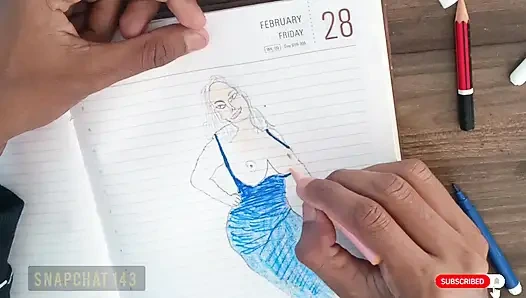 FEBRUARY
FRIDAY
28
SNAPCHAT 143
SUBSCRIBED